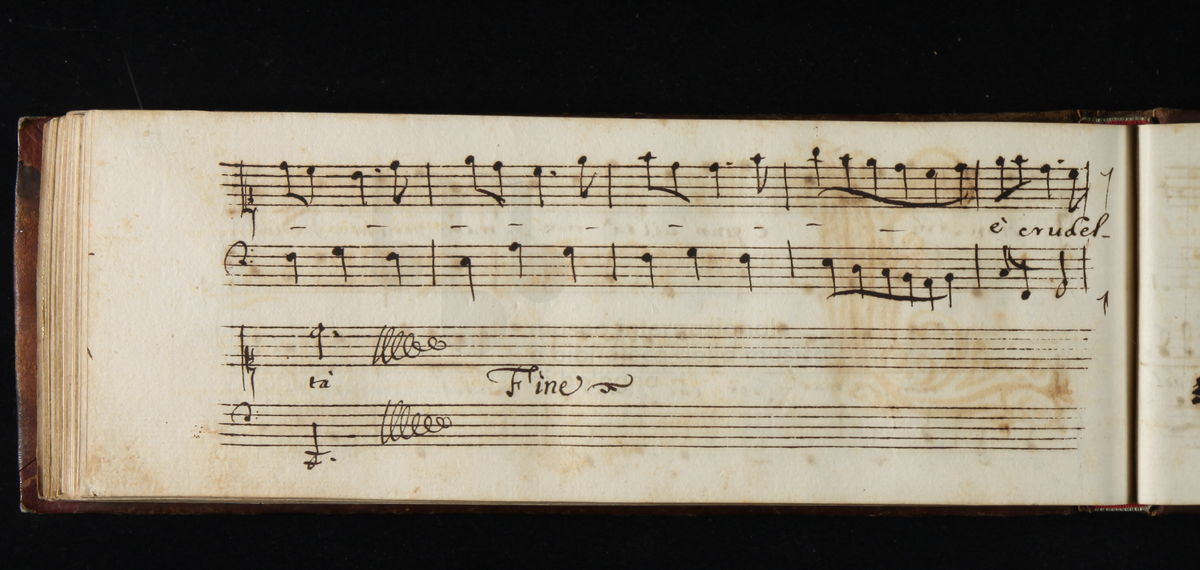 è crudel-
tà
Fine